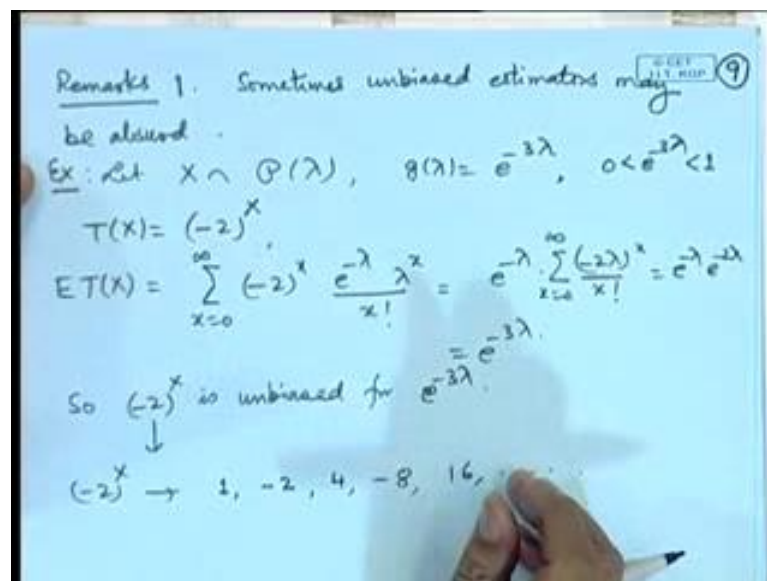 Remarks 1. Sometimes unbiased estimators may
be absurd.
Ex: Let X ~ P(λ), g(λ) = e^{-3λ}, 0 < e^{-3λ} < 1
T(X) = (-2)^X.
E T(X) = ∑_{x=0}^{∞} (-2)^x \frac{e^{-λ} λ^x}{x!} = e^{-λ} · ∑_{x=0}^{∞} \frac{(-2λ)^x}{x!} = e^{-λ} e^{-2λ}
= e^{-3λ}.
So (-2)^X is unbiased for e^{-3λ}.
↓
(-2)^X → 1, -2, 4, -8, 16, . . .
© CET
I.I.T. KGP
9